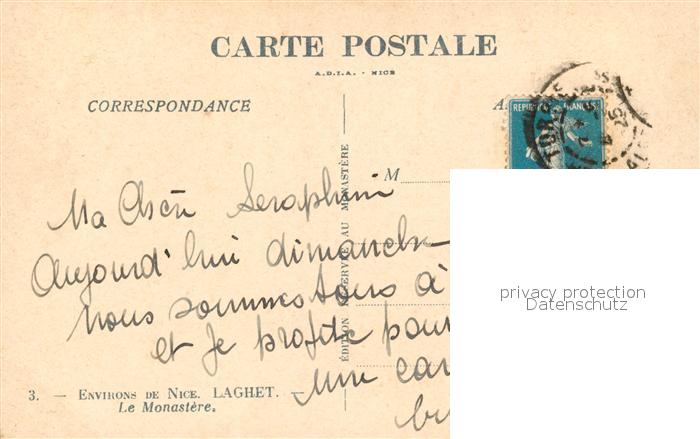 CARTE POSTALE
A.D.I.A. - NICE
CORRESPONDANCE
A
REPUBLIQUE FRANÇAISE
M
ÉDITION RÉSERVÉE AU MONASTÈRE
Ma Chère Seraphini
Aujourd'hui dimanche
nous sommes tous à
et je profite pour
une car
3. — ENVIRONS DE NICE. LAGHET. —
Le Monastère.
privacy protection
Datenschutz